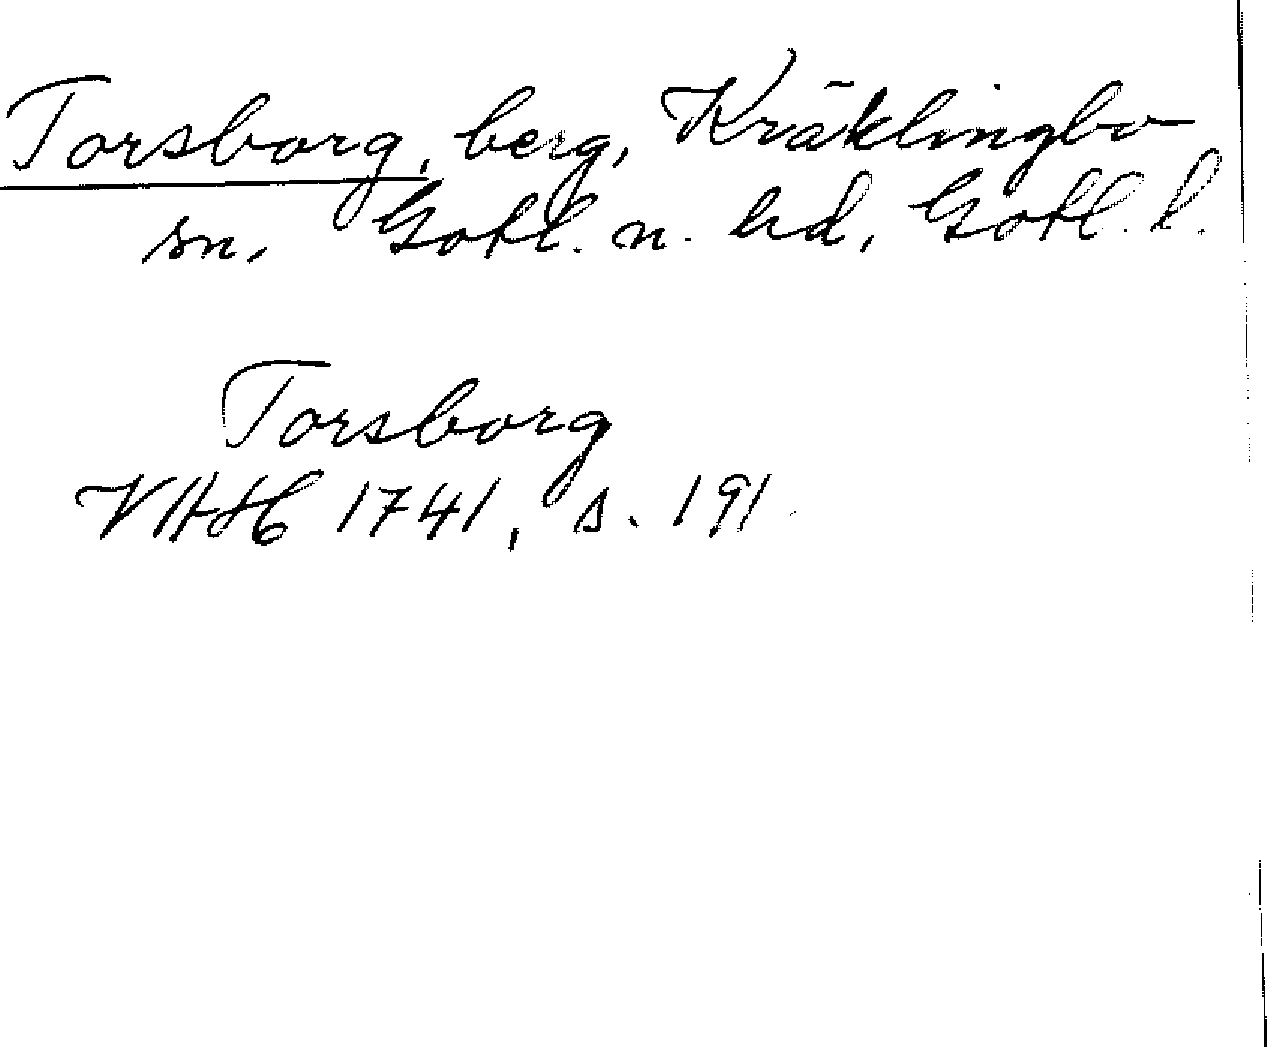 Torsborg, berg, Kräklingbo
sn, Gotl. n. hd, Gotl. l.
Torsborg
VHAH 1741, s. 191